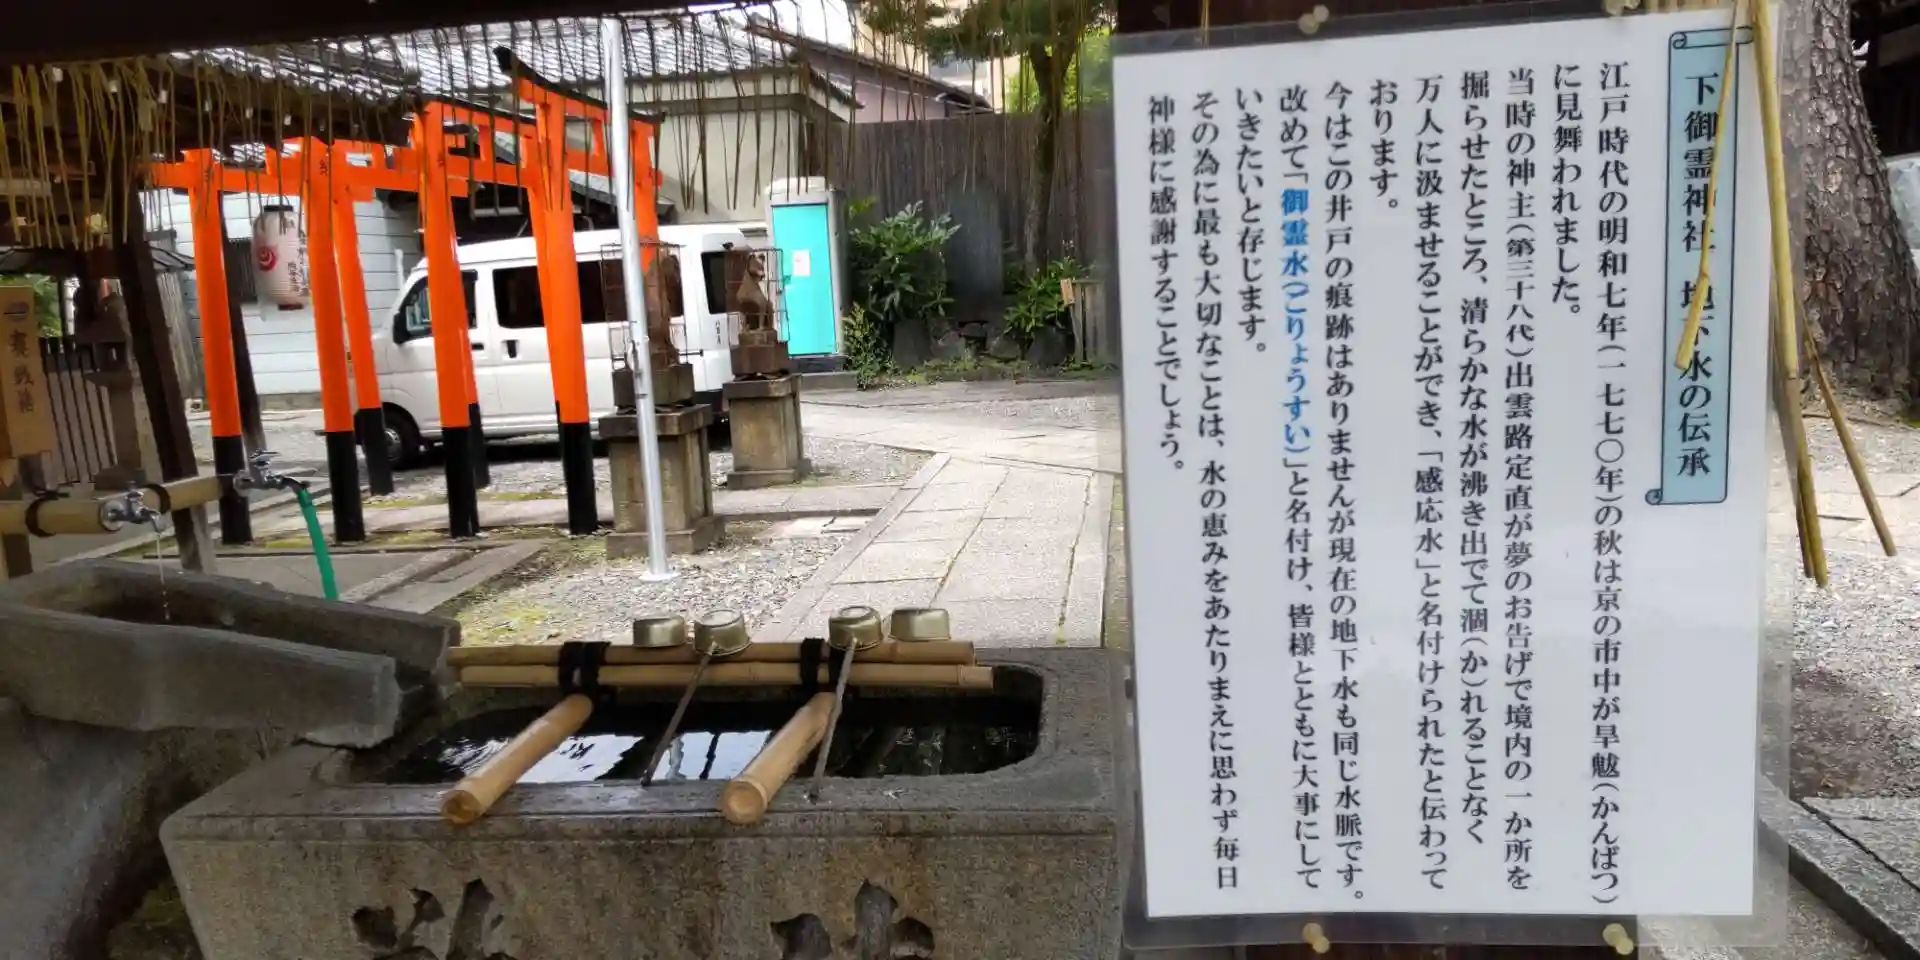 下御霊神社 地下水の伝承
江戸時代の明和七年(一七七〇年)の秋は京の市中が旱魃(かんばつ)
に見舞われました。
当時の神主(第三十八代)出雲路定直が夢のお告げで境内の一か所を
掘らせたところ、清らかな水が沸き出でて涸(か)れることなく
万人に汲ませることができ、「感応水」と名付けられたと伝わって
おります。
今はこの井戸の痕跡はありませんが現在の地下水も同じ水脈です。
改めて「御霊水(ごりょうすい)」と名付け、皆様とともに大事にして
いきたいと存じます。
その為に最も大切なことは、水の恵みをあたりまえに思わず毎日
神様に感謝することでしょう。